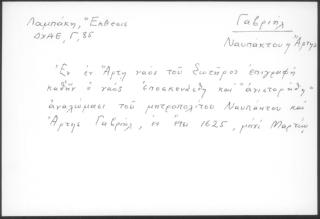 Λαμπάκη, "Εκθεσις
ΔΧΑΕ, Γ, 85
Γαβριήλ
Ναυπάκτου η Άρτης
Ἐν ἐν Ἄρτῃ ναος τοῦ Σωτῆρος ἐπιγραφή
καθ' ἥν ὁ ναός ἐπεσκευάσθη καὶ "ἀνιστορήθη"
ἀναλώμασι τοῦ μητροπολίτου Ναυπάκτου καὶ
Ἄρτης Γαβριήλ, ἐν ἔτει 1625, μηνί Μαρτίῳ